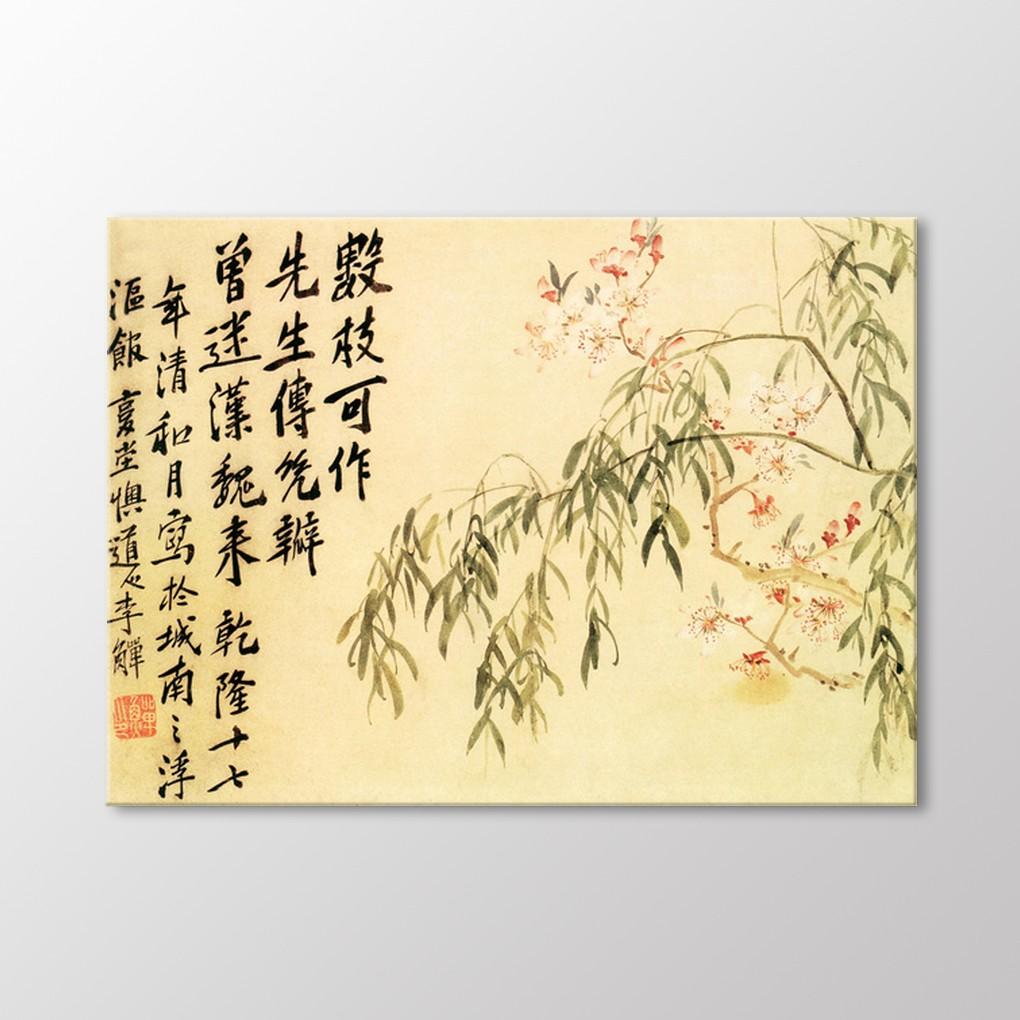 數枝可作
先生傳筦辯
曾迷漢魏來 乾隆十七
年清和月寫於城南之浮
漚館 夏堂懊道人李鱓